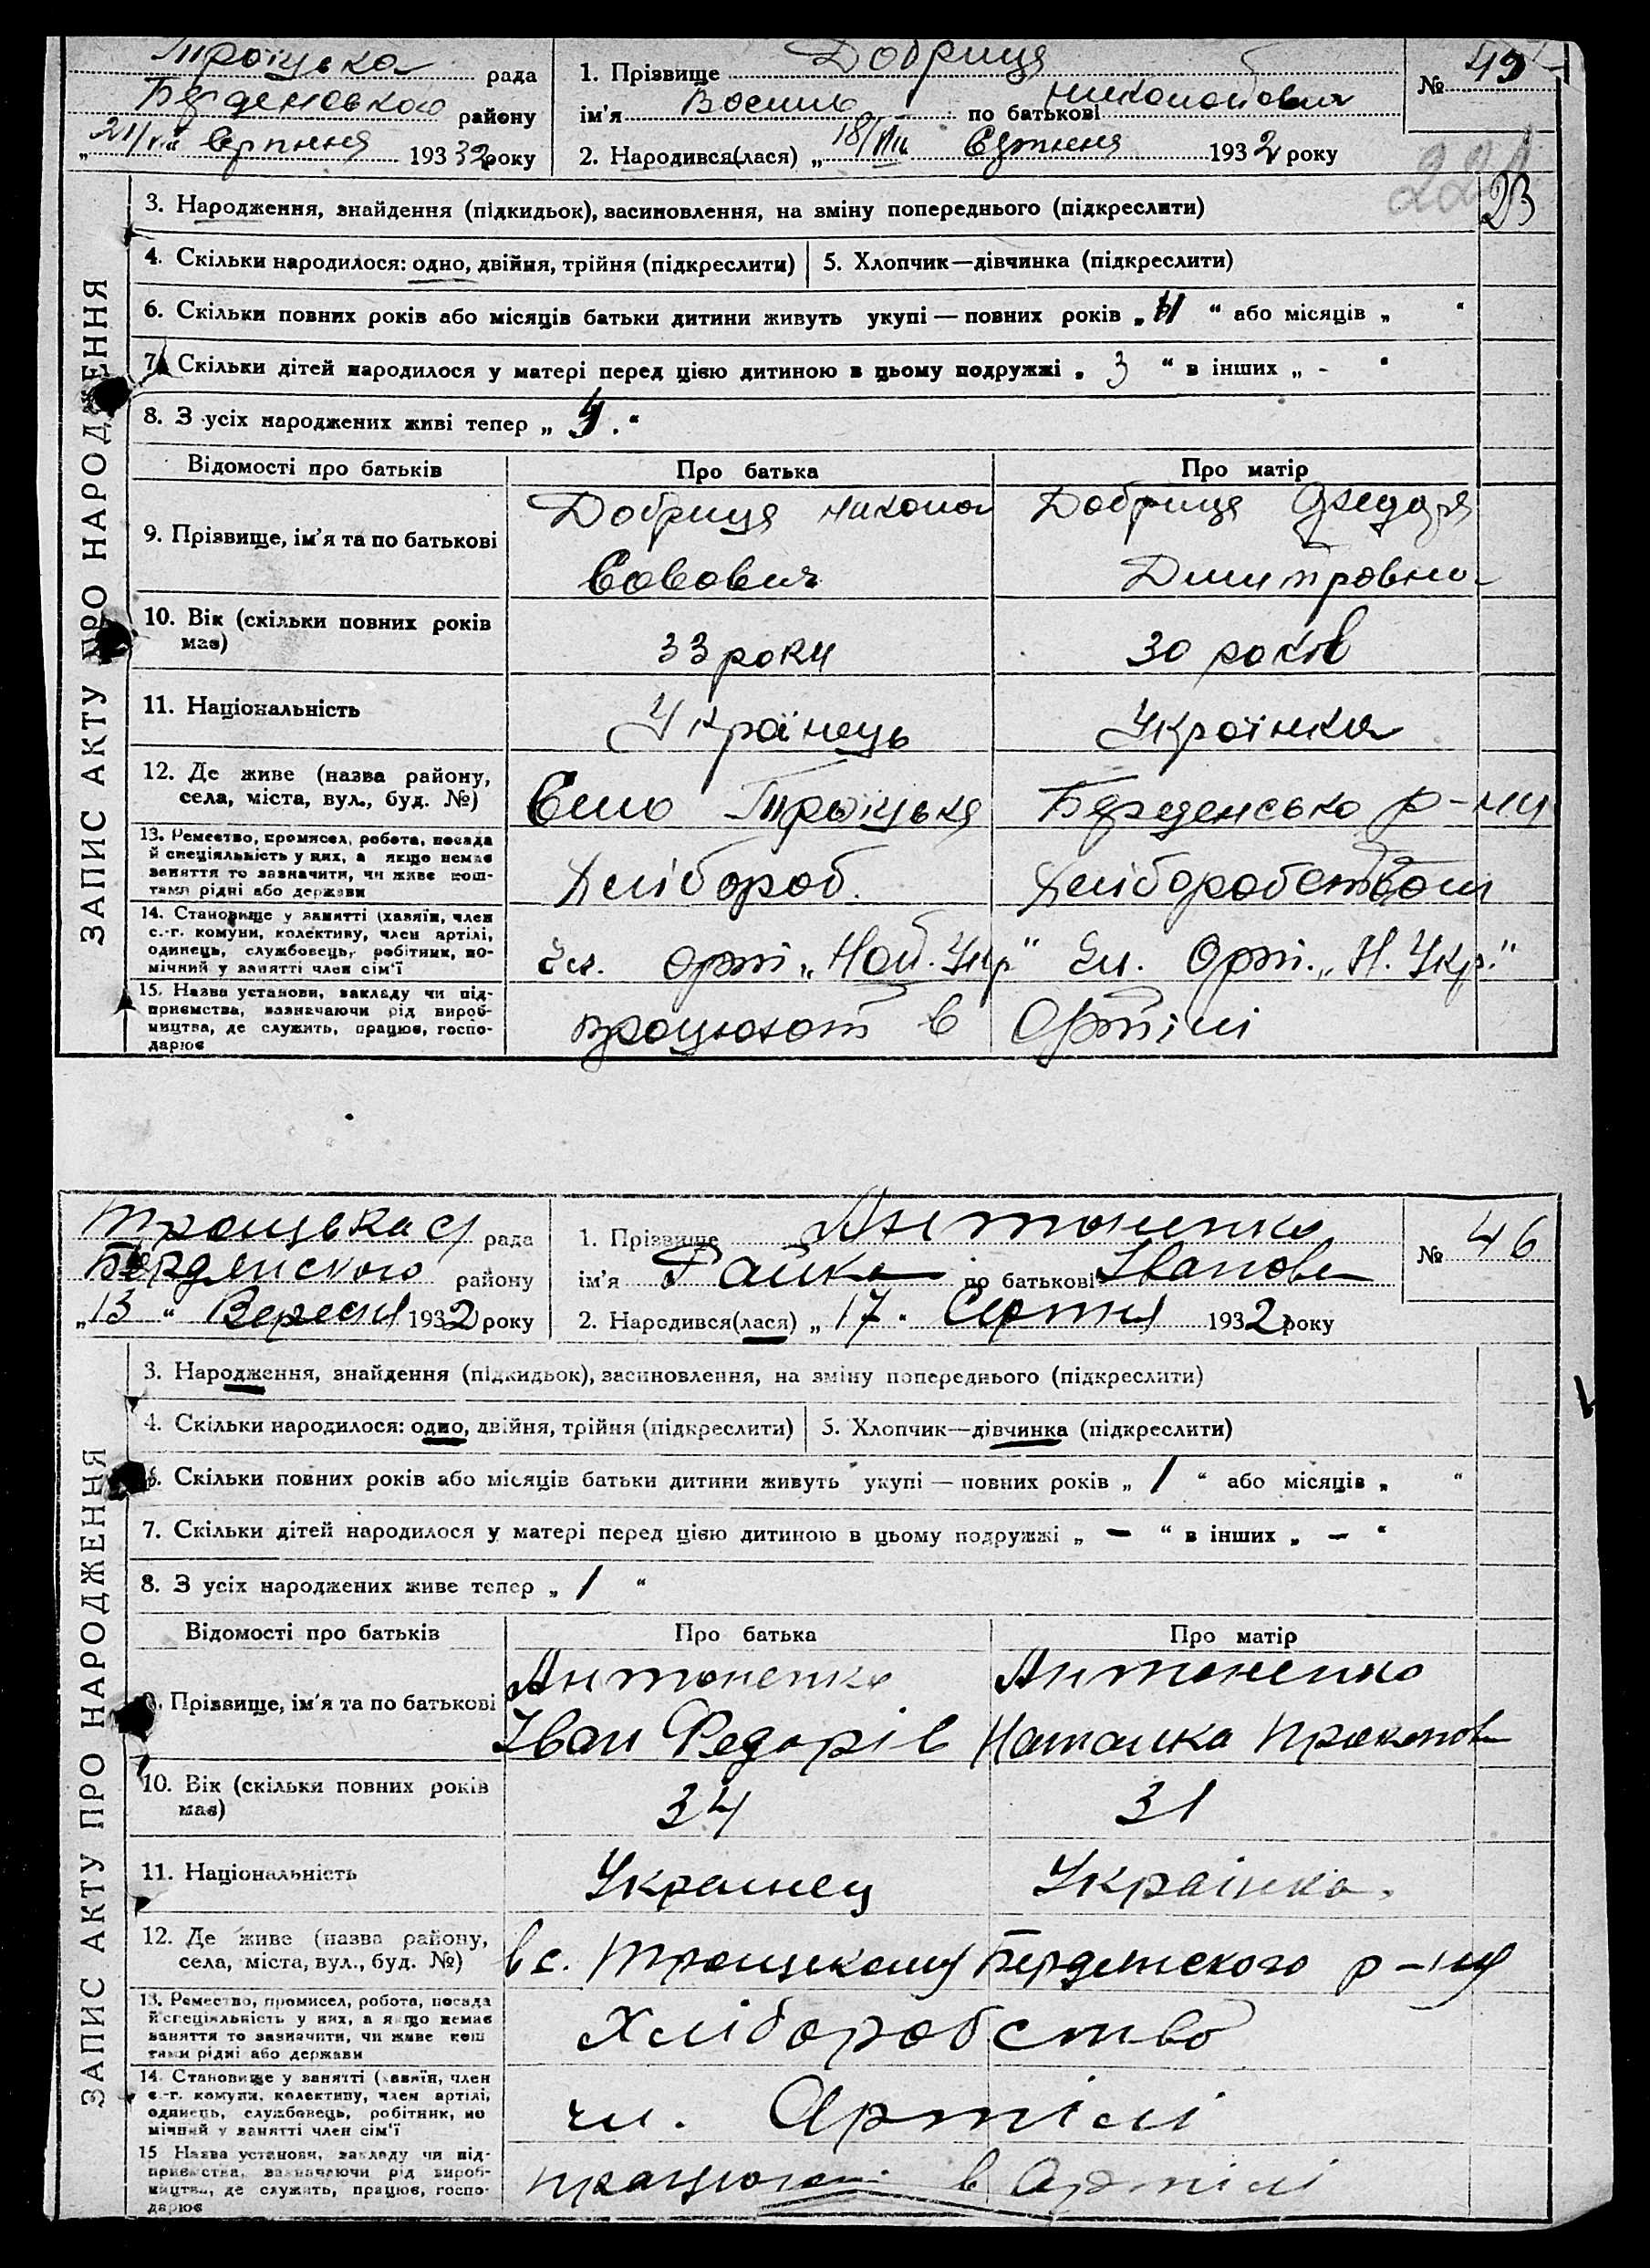 Троіцька рада
Берденського району
„21/VIII Серпння 1932 року
1. Прізвище Добриця
ім'я Восиль по батькові Никонович
2. Народився(лася) „18/VIII Серпння 1932 року
№ 45
23
ЗАПИС АКТУ ПРО НАРОДЖЕННЯ
3. Народження, знайдення (підкидьок), засиновлення, на зміну попереднього (підкреслити)
4. Скільки народилося: одно, двійня, трійня (підкреслити) 5. Хлопчик—дівчинка (підкреслити)
6. Скільки повних років або місяців батьки дитини живуть укупі — повних років „ “ або місяців „ “
7. Скільки дітей народилося у матері перед цією дитиною в цьому подружжі „ 3 “ в інших „ - “
8. З усіх народжених живі тепер „ 4 . “
Відомості про батьків Про батька Про матір
9. Прізвище, ім'я та по батькові
Добриця Никона Добриця
Совович Дмитровна
10. Вік (скільки повних років має)
33 роки 30 років
11. Національність
Українець Українка
12. Де живе (назва району, села, міста, вул., буд. №)
Село Троіцька Берденсько р-ну
13. Ремество, промисел, робота, посада й спеціяльність у них, а якщо немає заняття то зазначити, чи живе коштами рідні або держави
Хлібороб. Хліборобством
14. Становище у занятті (хазяїн, член с.-г. комуни, колективу, член артілі, одинець, службовець, робітник, помічний у занятті член сім'ї
Чл. Орті „Нов. Укр“ Чл. Орті. „Н. Укр.“
15. Назва установи, закладу чи підприємства, зазначаючи рід виробництва, де служить, працює, господарює
процюют в Ортілі
Троицька с/ рада
Бердянского району
„13“ Вересня 1932 року
1. Прізвище Антоненко
ім'я Райка по батькові Іванова
2. Народився(лася) „17. Серпня 1932 року
№ 46
ЗАПИС АКТУ ПРО НАРОДЖЕННЯ
3. Народження, знайдення (підкидьок), засиновлення, на зміну попереднього (підкреслити)
4. Скільки народилося: одно, двійня, трійня (підкреслити) 5. Хлопчик—дівчинка (підкреслити)
6. Скільки повних років або місяців батьки дитини живуть укупі — повних років „ 1 “ або місяців „ “
7. Скільки дітей народилося у матері перед цією дитиною в цьому подружжі „ — “ в інших „ — “
8. З усіх народжених живе тепер „ 1 “
Відомості про батьків Про батька Про матір
9. Прізвище, ім'я та по батькові
Антоненко Антоненко
Іван Федорів Наталка Прокопов
10. Вік (скільки повних років має)
34 31
11. Національність
Украинец Украінка.
12. Де живе (назва району, села, міста, вул., буд. №)
в с. Троицкому Бердянского р-ну
13. Ремество, промисел, робота, посада й спеціяльність у них, а якщо немає заняття то зазначити, чи живе коштами рідні або держави
Хліборобство
14. Становище у занятті (хазяїн, член с.-г. комуни, колективу, член артілі, одинець, службовець, робітник, помічний у занятті член сім'ї
чл. Артілі
15 Назва установи, закладу чи підприємства, зазначаючи рід виробництва, де служить, працює, господарює
в Артілі